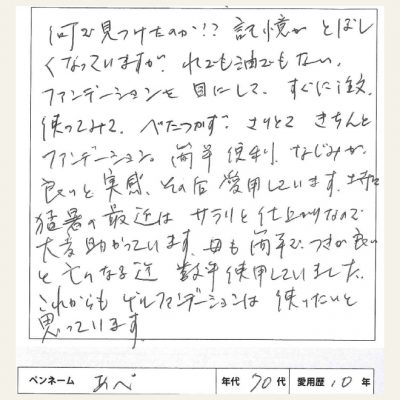 何で見つけたのか!? 記憶が とぼし
くなっていますが、れでも油でもない、
ファンデーションを 目にして、すぐに注文。
使ってみて、べたつかず、さりとて きちんと
ファンデーション。簡単 便利、なじみが
良いと 実感、その后 愛用しています。
猛暑の 最近は サラリと仕上がりなので
大変助かっています。母も簡単で、つきが良い
と 亡くなる迄 数年使用していました。
これからも ゲルファンデーションは 使いたいと
思っています。
ペンネーム あべ 年代 70代 愛用歴 10年